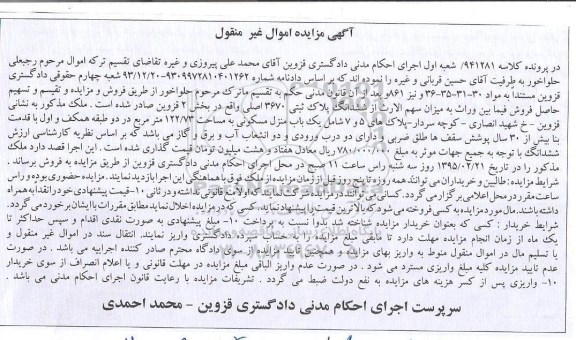 آگهی مزایده اموال غیر منقول
در پرونده کلاسه ۹۴۱۲۸۱/ شعبه اول اجرای احکام مدنی دادگستری قزوین آقای محمد علی پیروزی و غیره تقاضای تقسیم ترکه اموال مرحوم رجبعلی
حلواخور به طرفیت آقای حسین قربانی و غیره را نموده اند که بر اساس دادنامه شماره ۹۳۰۹۹۷۲۸۱۰۴۰۱۲۶۲-۹۳/۱۲/۲۰ شعبه چهارم حقوقی دادگستری
قزوین مستنداً به مواد ۳۰-۳۱-۳۵-۳۶ و نیز ۸۶۱ بعد از آن قانون مدنی حکم به تقسیم ماترک مرحوم حلواخور از طریق فروش و مزایده و تقسیم و تسهیم
حاصل فروش فیما بین وراث به میزان سهم الارث از ششدانگ پلاک ثبتی ۳۶۷۰ اصلی واقع در بخش ۲ قزوین صادر شده است. ملک مذکور به نشانی
قزوین - خ شهید انصاری - کوچه سردار- پلاک های ۵ و ۷ شامل یک باب منزل مسکونی به مساحت ۱۲۲/۷۳ متر مربع در دو طبقه همکف و اول با قدمت
بنا بیش از ۳۰ سال پوشش سقف ها طلق ضربی و دارای دو درب ورودی و دو انشعاب آب و برق و گاز می باشد که بر اساس نظریه کارشناسی ارزش
ششدانگ با توجه به جمیع جهات موثر به مبلغ ۷۸۰/۰۰۰/۰۰۰ ریال معادل هفتاد و هشت میلیون تومان قیمت گذاری شده است. این اجرا قصد دارد ملک
مذکور را در تاریخ ۱۳۹۵/۰۲/۲۱ روز سه شنبه راس ساعت ۱۱ صبح در محل اجرای احکام مدنی دادگستری قزوین از طریق مزایده به فروش برساند.
شرایط مزایده: طالبین و خریداران می توانند همه روزه تا پنج روز قبل از زمان مزایده از ملک فوق با هماهنگی این اجرا بازدید نمایند. مزایده حضوری بوده و راس
ساعت مقرر در محل اعلامی برگزار می گردد. کسانی می توانند در مزایده شرکت نمایند که اولا منع قانونی نداشته و در ثانی ۱۰- قیمت پیشنهادی خود را نقدا به همراه
داشته باشند. مال مورد مزایده به کسی فروخته می شود که بالاترین قیمت را پیشنهاد نماید. کسی که در مزایده اخلال نماید مطابق مقررات با ایشان برخورد می گردد.
شرایط خریدار: کسی که بعنوان خریدار مزایده شناخته شد بدوا نسبت به پرداخت ۱۰- مبلغ پیشنهادی به صورت نقدی اقدام و سپس حداکثر تا
یک ماه از زمان انجام مزایده مهلت دارد تا مابقی مبلغ مزایده را به حساب سپرده دادگستری واریز نمایند. انتقال سند در اموال غیر منقول و
یا تسلیم مال در اموال منقول منوط به واریز بهای مزایده و همچنین تایید مزایده از سوی دادگاه محترم صادر کننده اجراییه می باشد. در صورت
عدم تایید مزایده کلیه مبلغ واریزی مسترد می شود. در صورت عدم واریز الباقی مبلغ مزایده در مهلت قانونی و یا اعلام انصراف از سوی خریدار
۱۰- واریزی پس از کسر هزینه های مزایده به نفع دولت ضبط می گردد. تشریفات مزایده با رعایت قانون اجرای احکام مدنی می باشد.
سرپرست اجرای احکام مدنی دادگستری قزوین - محمد احمدی